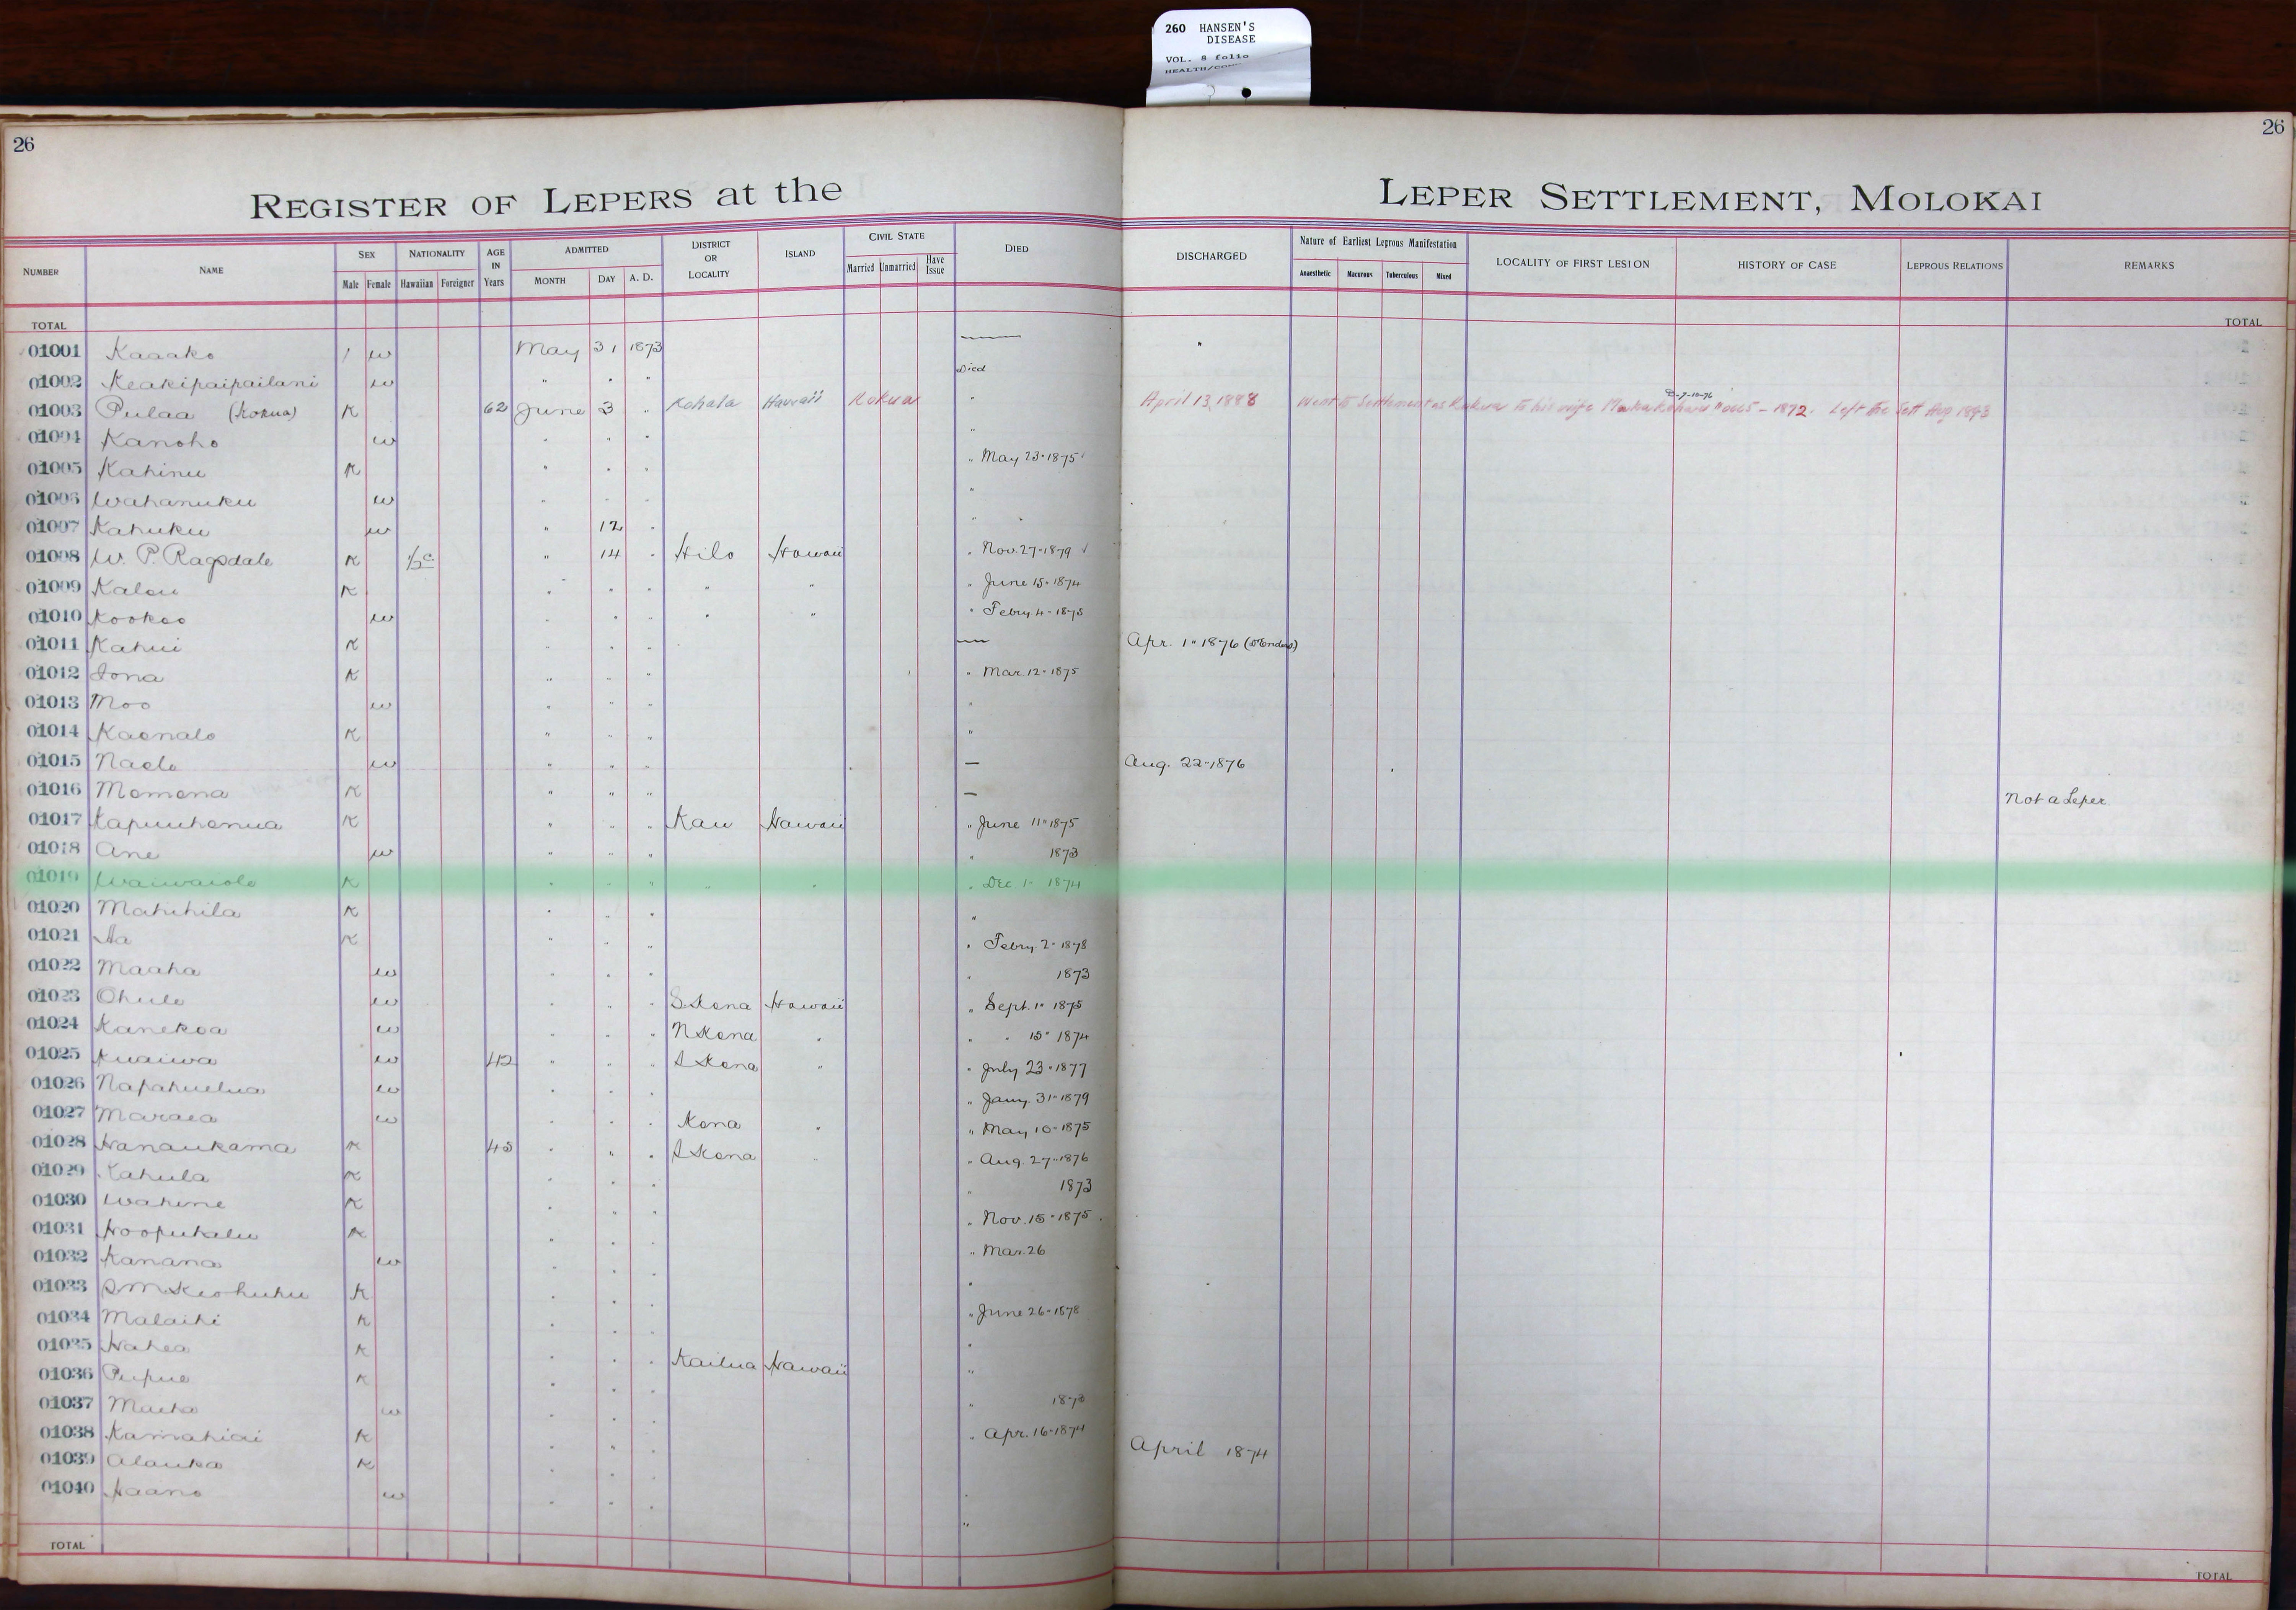 260 HANSEN'S
DISEASE
VOL. 8 folio
HEALTH/
26 26
REGISTER OF LEPERS at the LEPER SETTLEMENT, MOLOKAI
NUMBER NAME SEX Male Female NATIONALITY Hawaiian Foreigner AGE IN Years ADMITTED MONTH DAY A. D. DISTRICT OR LOCALITY ISLAND CIVIL STATE Married Unmarried Have Issue DIED DISCHARGED Nature of Earliest Leprous Manifestation Anaesthetic Macurous Tuberculous Mixed LOCALITY OF FIRST LESION HISTORY OF CASE LEPROUS RELATIONS REMARKS
TOTAL TOTAL
01001 Kaaako / w May 31 1873 —
01002 Keakipaipailani w " " " Died
01003 Pulaa (Kokua) K 62 June 3 " Kohala Hawaii Kokua " April 13, 1888 Went to Settlement as Kokua to his wife 1872. Left the Sett Aug 1893
01004 Kanoho w " " " "
01005 Kahinu K " " " " May 23 " 1875
01006 Wahanuku w " " " "
01007 Kahuku w " 12 " "
01008 W. P. Ragsdale K 1/2 c " 14 " Hilo Hawaii " Nov. 27 " 1879
01009 Kalou K " " " " " " June 15 " 1874
01010 Kookoo w " " " " " " Febry 4 - 1875
01011 Kahui K " " " — Apr. 1 " 1876
01012 Iona K " " " " Mar. 12 " 1875
01013 Moo w " " " "
01014 Kaonalo K " " " "
01015 Naelo w " " " — Aug. 22 - 1876
01016 Momona K " " " — Not a Leper
01017 Kapuuhonua K " " " Kau Hawaii " June 11 " 1875
01018 Ane w " " " " 1873
01019 Waiwaiole K " " " " " " Dec. 1 " 1874
01020 Mahihila K " " " "
01021 Aa K " " " " Febry. 2 " 1878
01022 Maaha w " " " " 1873
01023 Ohule w " " " S. Kona Hawaii " Sept. 1 " 1875
01024 Kanekoa w " " " N Kona " " " 15 " 1874
01025 Kuaiwa w 42 " " " S Kona " " July 23 " 1877
01026 Napahuelua w " " " " Jany. 31 " 1879
01027 Maraea w " " " Kona " " May 10 " 1875
01028 Hanaukama K 43 " " " S Kona " " Aug. 27 " 1876
01029 Kahula K " " " " 1873
01030 Wahine K " " " " Nov. 15 " 1875
01031 Hoopukalu K " " " " Mar. 26
01032 Kanana w " " " "
01033 S M Keohuhu K " " " " June 26 " 1878
01034 Malaihi K " " " "
01035 Hahea K " " " Kailua Hawaii "
01036 Pupue K " " " " 1873
01037 Maeha w " " " " Apr. 16 " 1874
01038 Kamahiai K " " " April 1874
01039 Alauka K " " " "
01040 Haano w " " " "
TOTAL TOTAL